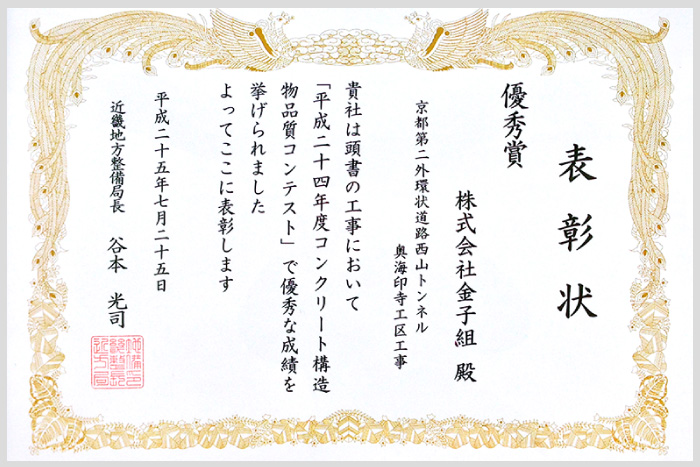 表彰状
優秀賞
株式会社金子組 殿
京都第二外環状道路西山トンネル
奥海印寺工区工事
貴社は頭書の工事において
「平成二十四年度コンクリート構造
物品質コンテスト」で優秀な成績を
挙げられました
よってここに表彰します
平成二十五年七月二十五日
近畿地方整備局長 谷本 光司